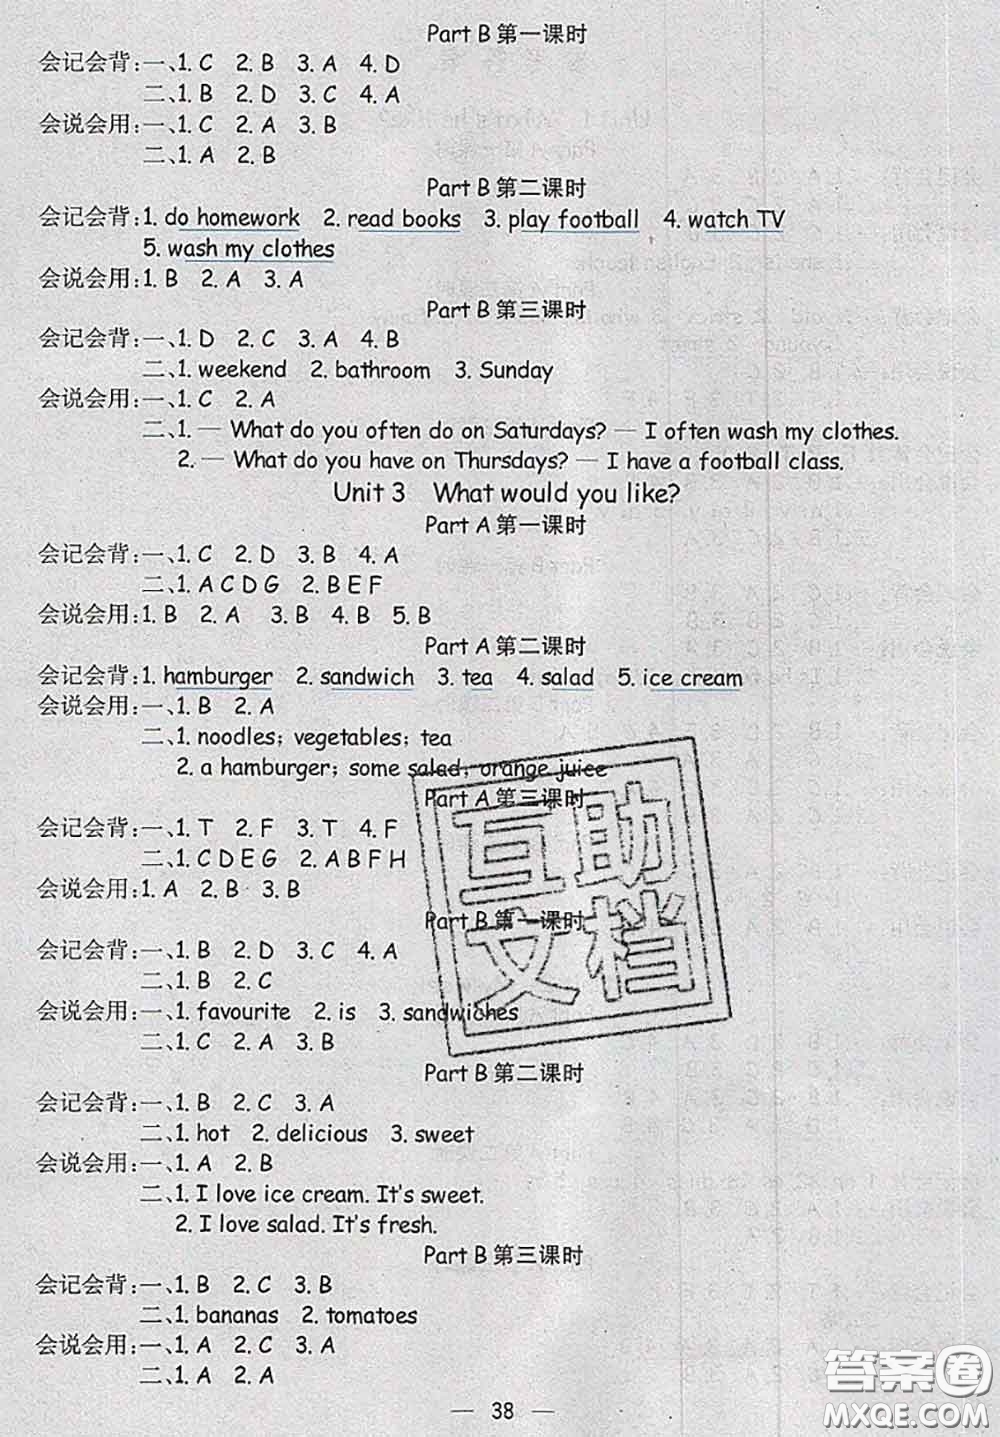 Part B 第一课时
会记会背:一、1. C 2. B 3. A 4. D
二、1. B 2. D 3. C 4. A
会说会用:一、1. C 2. A 3. B
二、1. A 2. B
Part B 第二课时
会记会背:1. do homework 2. read books 3. play football 4. watch TV
5. wash my clothes
会说会用:1. B 2. A 3. A
Part B 第三课时
会记会背:一、1. D 2. C 3. A 4. B
二、1. weekend 2. bathroom 3. Sunday
会说会用:一、1. C 2. A
二、1. — What do you often do on Saturdays? — I often wash my clothes.
2. — What do you have on Thursdays? — I have a football class.
Unit 3 What would you like?
Part A 第一课时
会记会背:一、1. C 2. D 3. B 4. A
二、1. A C D G 2. B E F
会说会用:1. B 2. A 3. B 4. B 5. B
Part A 第二课时
会记会背:1. hamburger 2. sandwich 3. tea 4. salad 5. ice cream
会说会用:一、1. B 2. A
二、1. noodles; vegetables; tea
2. a hamburger; some salad; orange juice
Part A 第三课时
会记会背:一、1. T 2. F 3. T 4. F
二、1. C D E G 2. A B F H
会说会用:1. A 2. B 3. B
Part B 第一课时
会记会背:一、1. B 2. D 3. C 4. A
二、1. B 2. C
会说会用:一、1. favourite 2. is 3. sandwiches
二、1. C 2. A 3. B
Part B 第二课时
会记会背:一、1. B 2. C 3. A
二、1. hot 2. delicious 3. sweet
会说会用:一、1. A 2. B
二、1. I love ice cream. It's sweet.
2. I love salad. It's fresh.
Part B 第三课时
会记会背:一、1. B 2. C 3. B
二、1. bananas 2. tomatoes
会说会用:一、1. A 2. C 3. A
二、1. A 2. A
— 38 —
互助
文档
答案圈
MXQE.COM